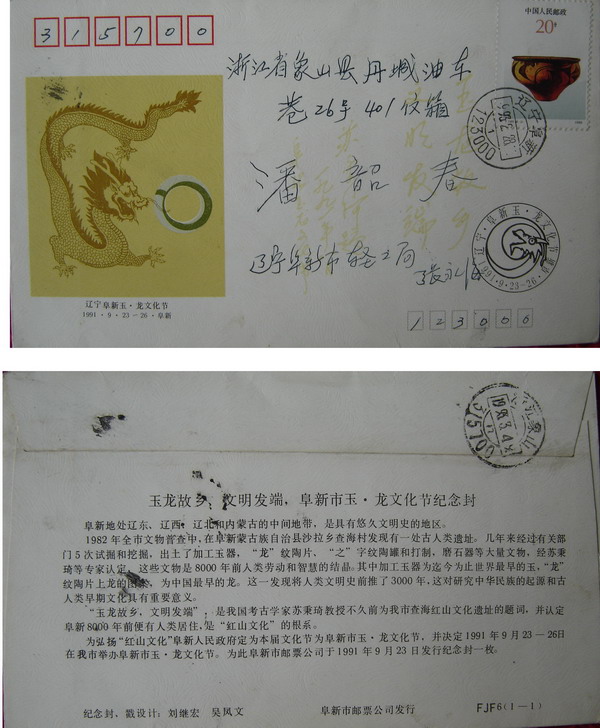 315700
中国人民邮政
20分
浙江省象山县丹城油车
巷26号401信箱
潘韶春
辽宁阜新
123000
辽宁·阜新玉·龙文化节
1991·9·23-26·阜新
辽宁阜新市轻工局
123000
辽宁阜新玉·龙文化节
1991·9·23-26·阜新
玉龙故乡、文明发端，阜新市玉·龙文化节纪念封
阜新地处辽东、辽西、辽北和内蒙古的中间地带，是具有悠久文明史的地区。
1982年全市文物普查中，在阜新蒙古族自治县沙拉乡查海村发现有一处古人类遗址。几年来经过有关部
门5次试掘和挖掘，出土了加工玉器，“龙”纹陶片、“之”字纹陶罐和打制，磨石器等大量文物，经苏秉
琦等专家认定，这些文物是8000年前人类劳动和智慧的结晶。其中加工玉器为迄今为止世界最早的玉，“龙”
纹陶片上龙的图案，为中国最早的龙。这一发现将人类文明史前推了3000年，这对研究中华民族的起源和古
人类早期文化具有重要意义。
“玉龙故乡、文明发端”，是我国考古学家苏秉琦教授不久前为我市查海红山文化遗址的题词，并认定
阜新8000年前便有人类居住，是“红山文化”的根系。
为弘扬“红山文化”阜新人民政府定为本届文化节为阜新市玉·龙文化节，并决定1991年9月23—26日
在我市举办阜新市玉·龙文化节。为此阜新市邮票公司于1991年9月23日发行纪念封一枚。
纪念封、戳设计：刘继宏 吴凤文
阜新市邮票公司发行
FJF6(1-1)